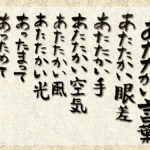 あたたかい言葉
あたたかい眼差
あたたかい手
あたたかい空気
あたたかい風
あたたかい光
あたたまって
あっためて